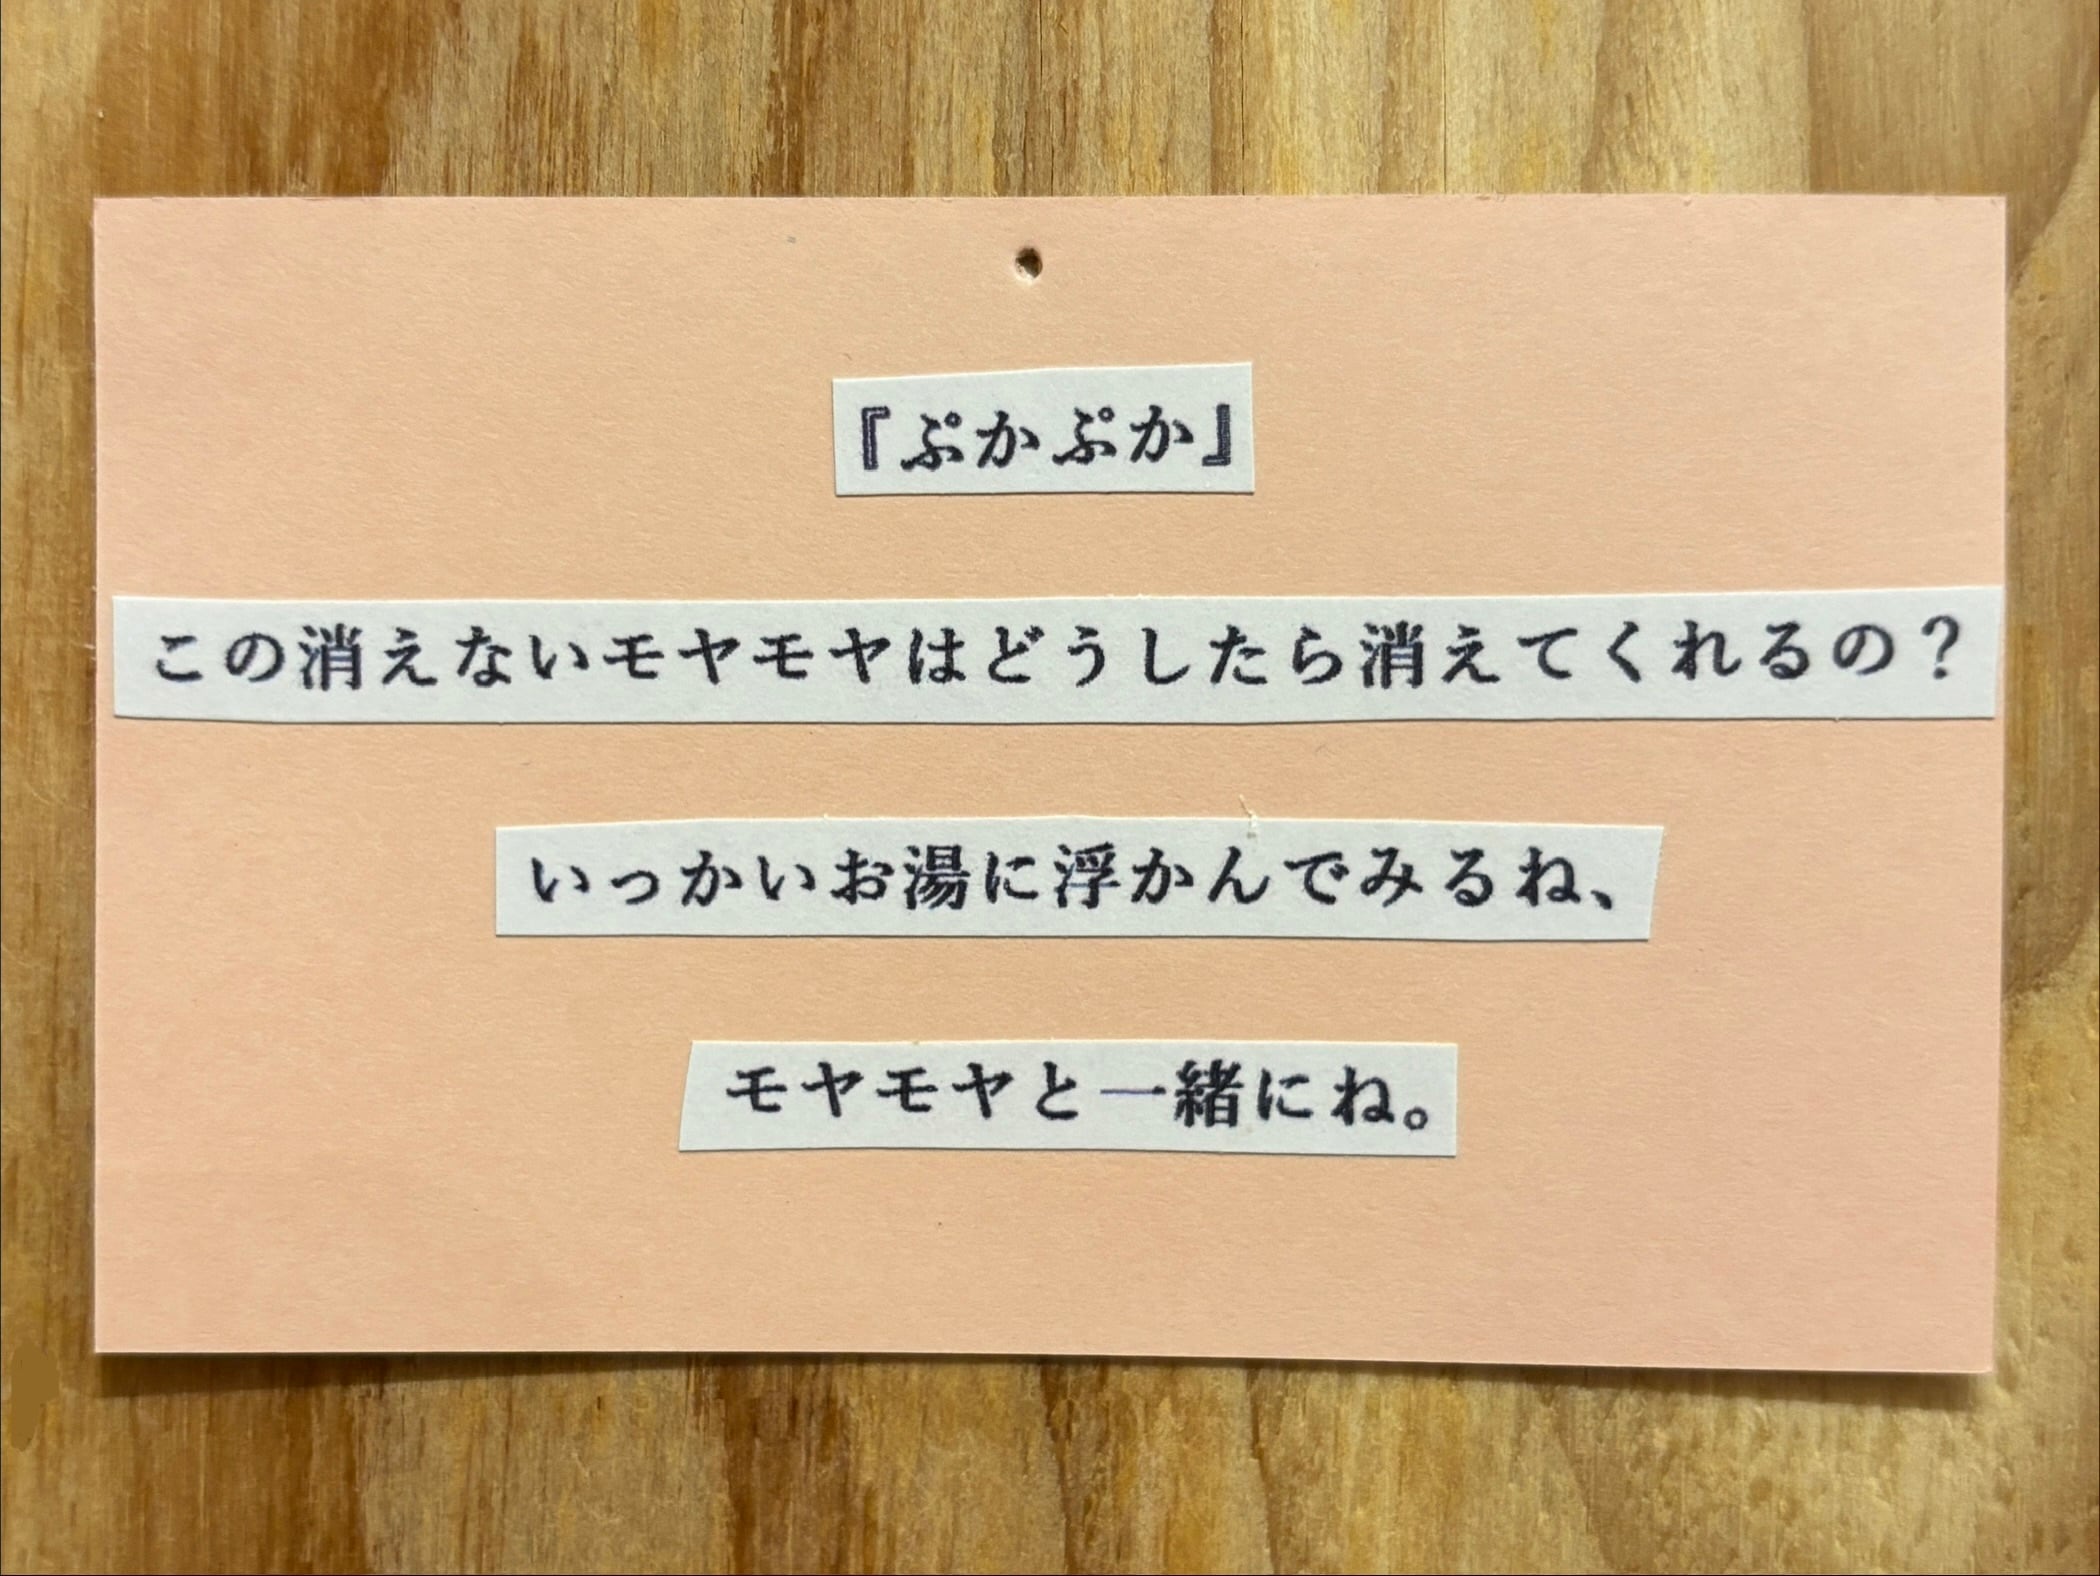 『ぷかぷか』
この消えないモヤモヤはどうしたら消えてくれるの？
いっかいお湯に浮かんでみるね、
モヤモヤと一緒にね。